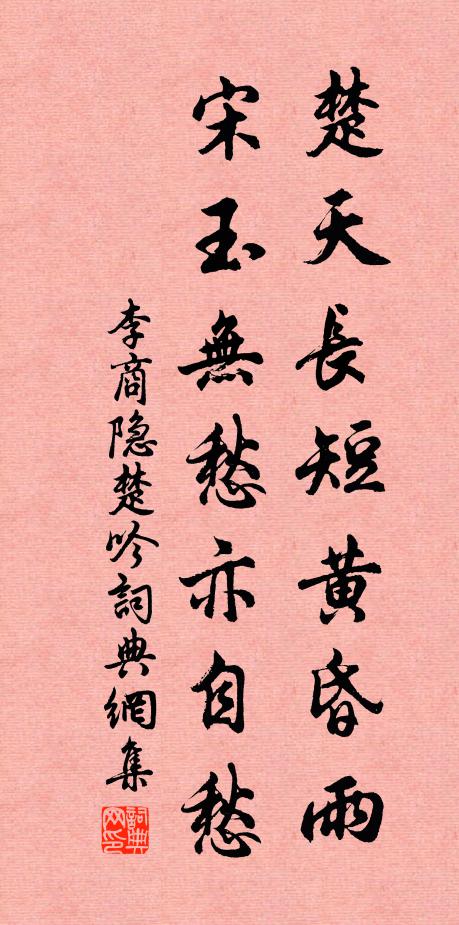 楚天長短黄昏雨
宋玉無愁亦自愁
李商隐楚吟詞典網集
詞典
网印